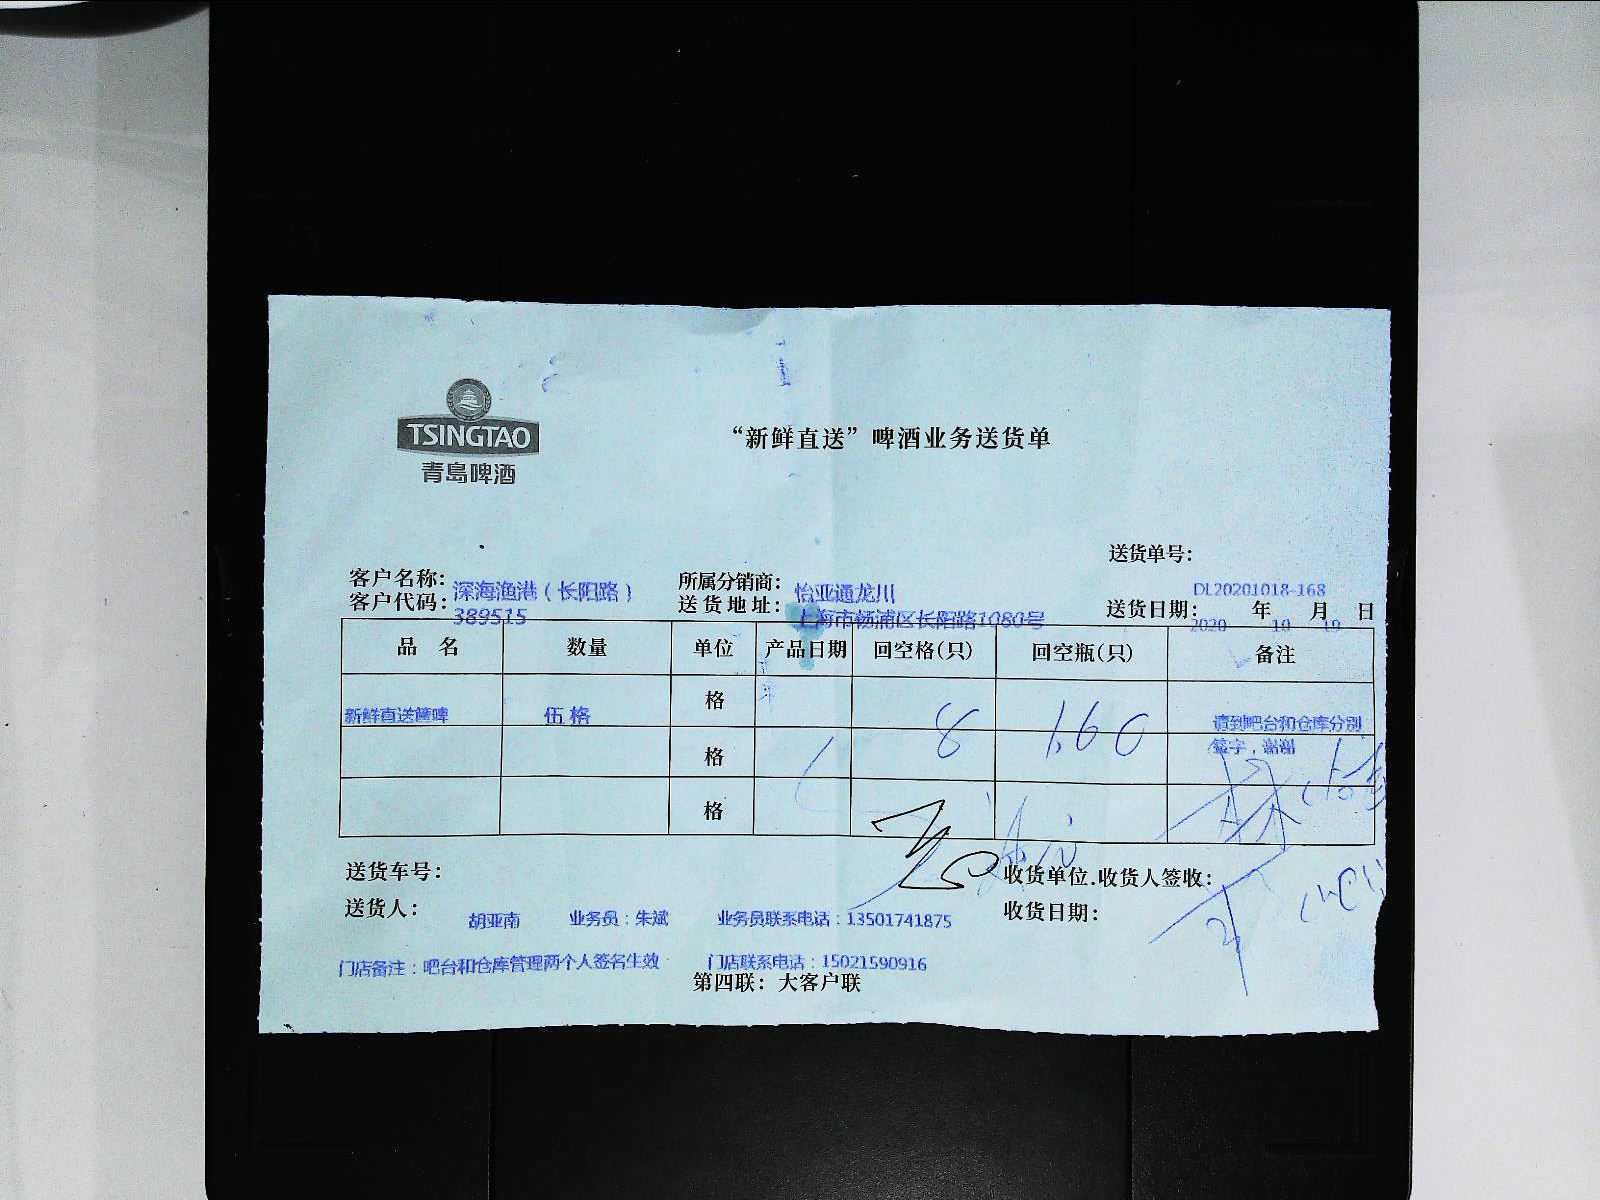 TSINGTAO
青島啤酒
“新鲜直送”啤酒业务送货单
送货单号：
DL20201018-168
客户名称：深海渔港（长阳路） 所属分销商：怡亚通龙川
客户代码：389515 送货地址：上海市杨浦区长阳路1080号 送货日期：2020年10月19日
品 名 数量 单位 产品日期 回空格(只) 回空瓶(只) 备注
新鲜直送 伍格 格 请到吧台和仓库分别
格 8 160 签字，谢谢
格
送货车号： 收货单位.收货人签收：
送货人： 胡亚南 业务员：朱斌 业务员联系电话：13501741875 收货日期：
门店备注：吧台和仓库管理两个人签名生效 门店联系电话：15021590916
第四联：大客户联